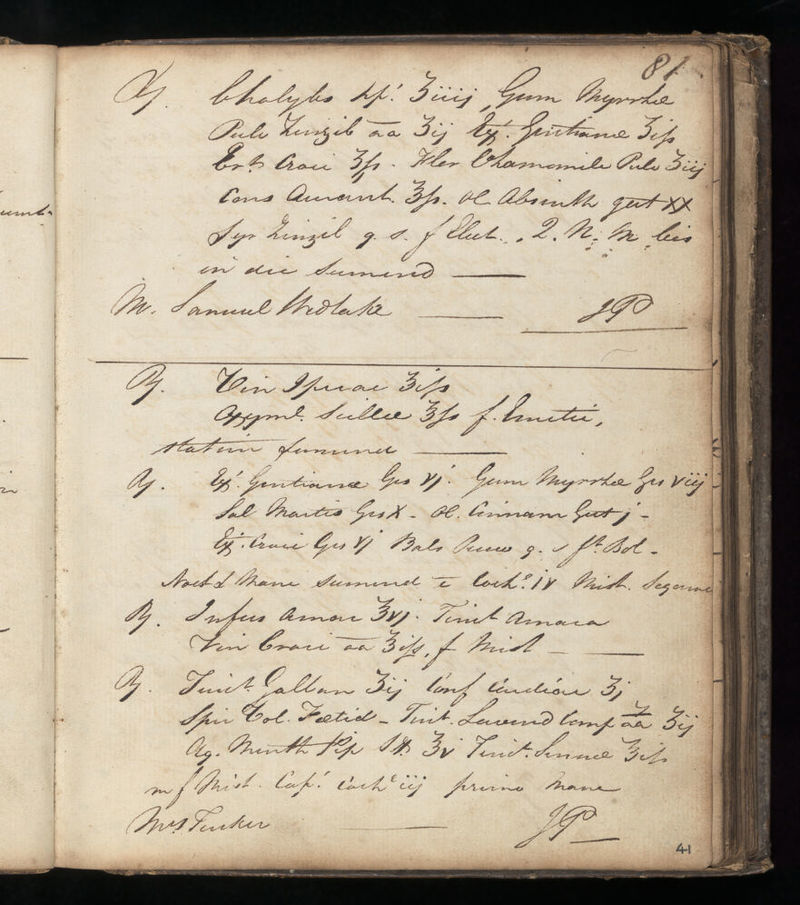 81
℞. Chalybs pp.t ʒiiij, Gum Myrrhæ
Pulv Zinzib āā ʒij Ext. Gentianæ ʒiſs
Croci ʒſs. Flor Chamomile Pulv ʒiij
Cons Aurant. ʒſs. Ol Absinth gut XX
Syr Zinzib q. s. f Elect. . Q. N. M. bis
in die sumend
M. Samuel Widlake JP
℞. Vin Ipecac ʒiſs
Oxyml. Scillæ ʒſs f. Emetic,
statim sumend
℞. Ext. Gentianæ Grs vj. Gum Myrrhæ Grs viij
Sal Martis Grs X - Ol. Cinnam Gut j -
Ext. Croci Grs vj Bals Peruv q. s ft. Bol -
Noct & Mane sumend c̄ Coch.s iv Mist. Sequent
℞. Infus Amar ʒvj. Tinct Amara
Vin Croci āā ʒiſs, f Mist
℞. Tinct. Galban ʒij Conf ʒj
Spir Vol. Fœtid - Tinct. Lavend Comp āā ʒij
Aq. Menth Pip ʒv Tinct. Sennæ ʒiſs
m f Mist. Cap.t Coch.s iij primo mane
Mrs Tucker JP
41